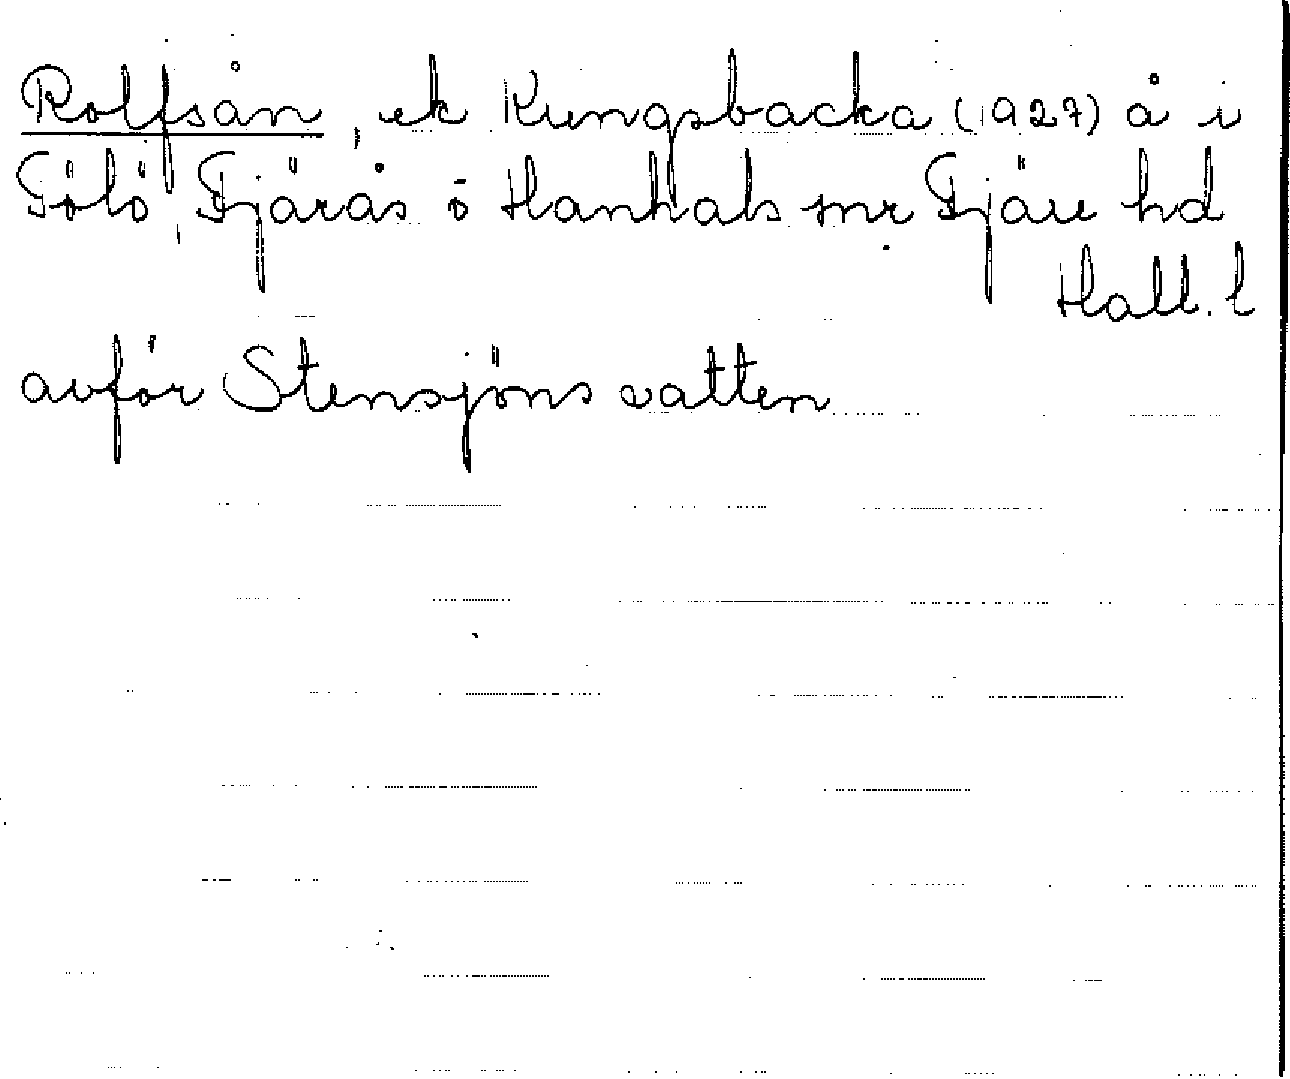 Rolfsån, ek Kungsbacka (1927) å i
Fölö, Fjärås o Hanhals snr Fjäre hd
Hall. l
avför Stensjöns vatten